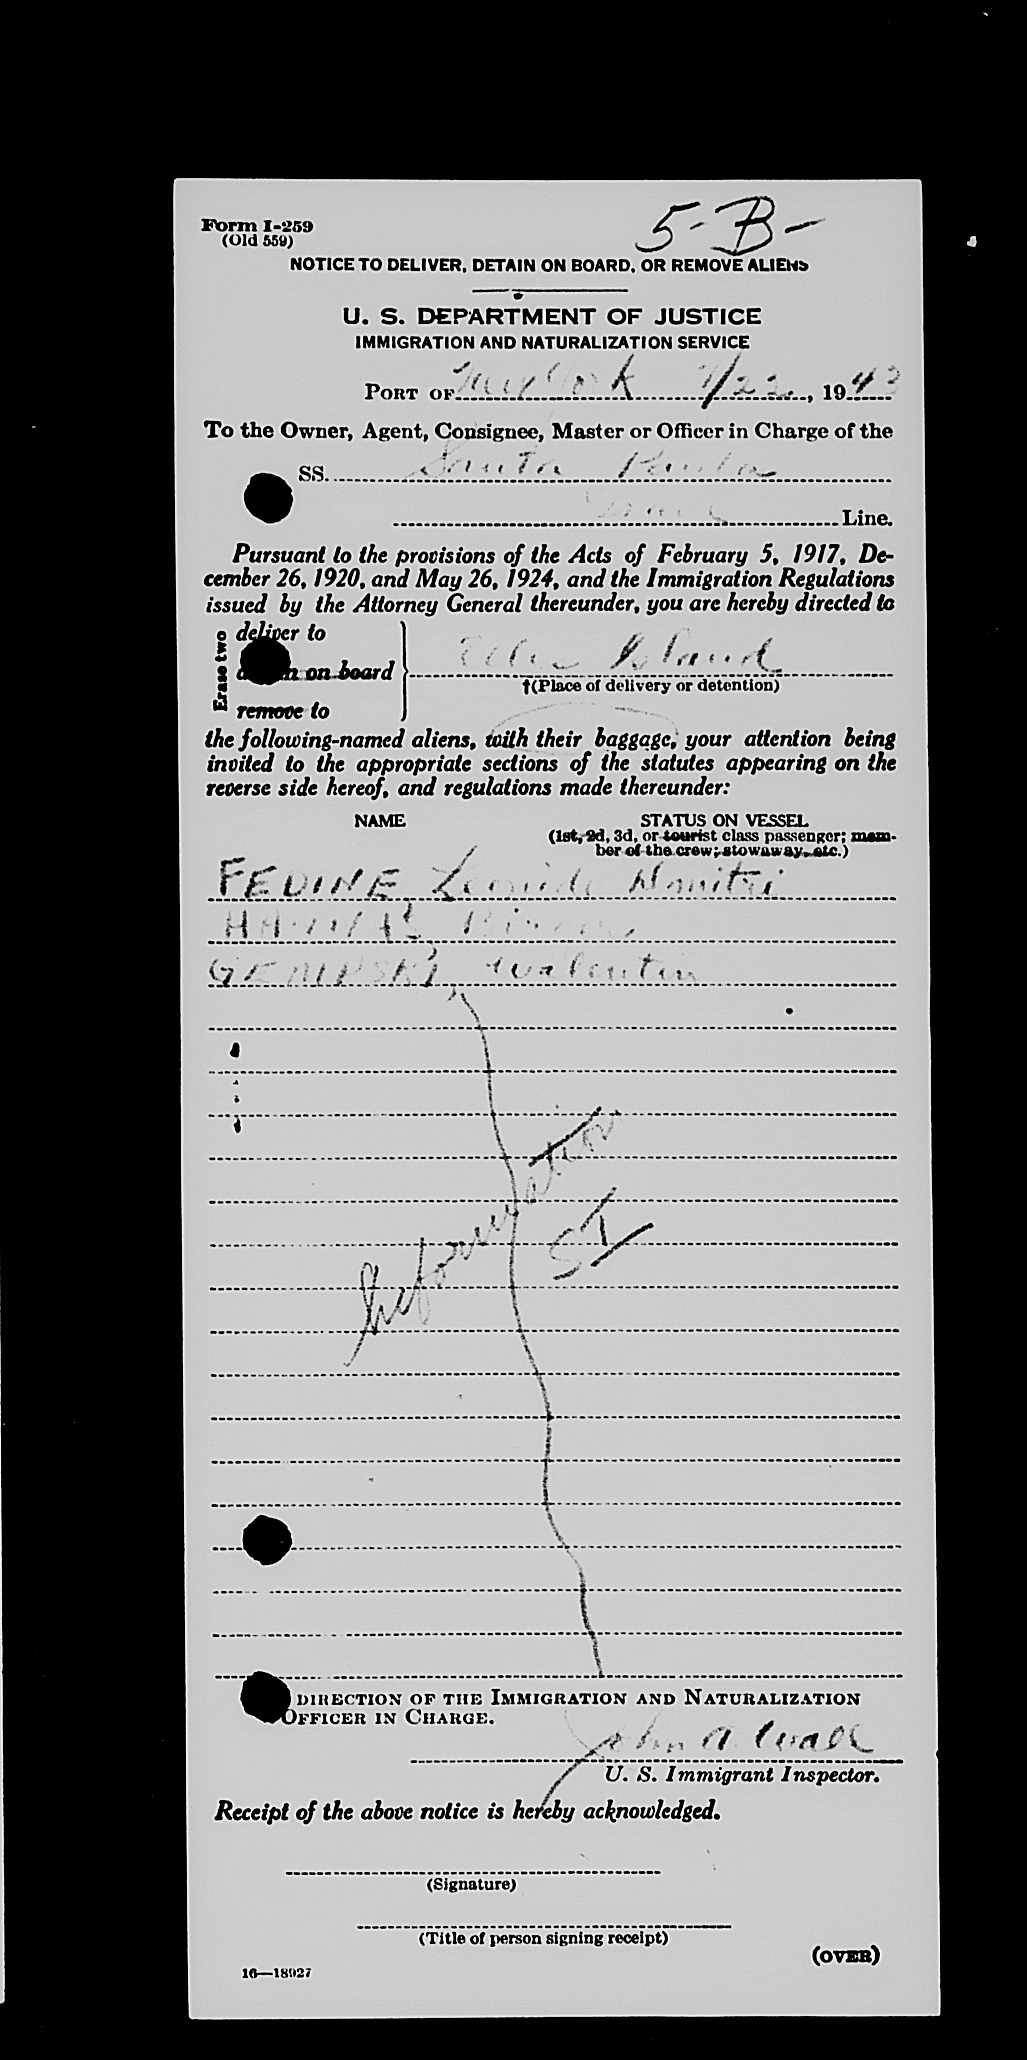 5-B-
Form I-259
(Old 559)
NOTICE TO DELIVER, DETAIN ON BOARD, OR REMOVE ALIENS
U. S. DEPARTMENT OF JUSTICE
IMMIGRATION AND NATURALIZATION SERVICE
PORT OF New York 7/22, 1943
To the Owner, Agent, Consignee, Master or Officer in Charge of the
SS. Santa Paula
Line.
Pursuant to the provisions of the Acts of February 5, 1917, De-
cember 26, 1920, and May 26, 1924, and the Immigration Regulations
issued by the Attorney General thereunder, you are hereby directed to
Erase two
deliver to
on board
remove to
Ellis Island
†(Place of delivery or detention)
the following-named aliens, with their baggage, your attention being
invited to the appropriate sections of the statutes appearing on the
reverse side hereof, and regulations made thereunder:
NAME
STATUS ON VESSEL
(1st, 2d, 3d, or tourist class passenger; mem-
ber of the crew; stowaway, etc.)
FEDINE Leonide Dmitri
Valentin
Information
SI
DIRECTION OF THE IMMIGRATION AND NATURALIZATION
OFFICER IN CHARGE.
John A. Wall
U. S. Immigrant Inspector.
Receipt of the above notice is hereby acknowledged.
(Signature)
(Title of person signing receipt)
(OVER)
16—18927